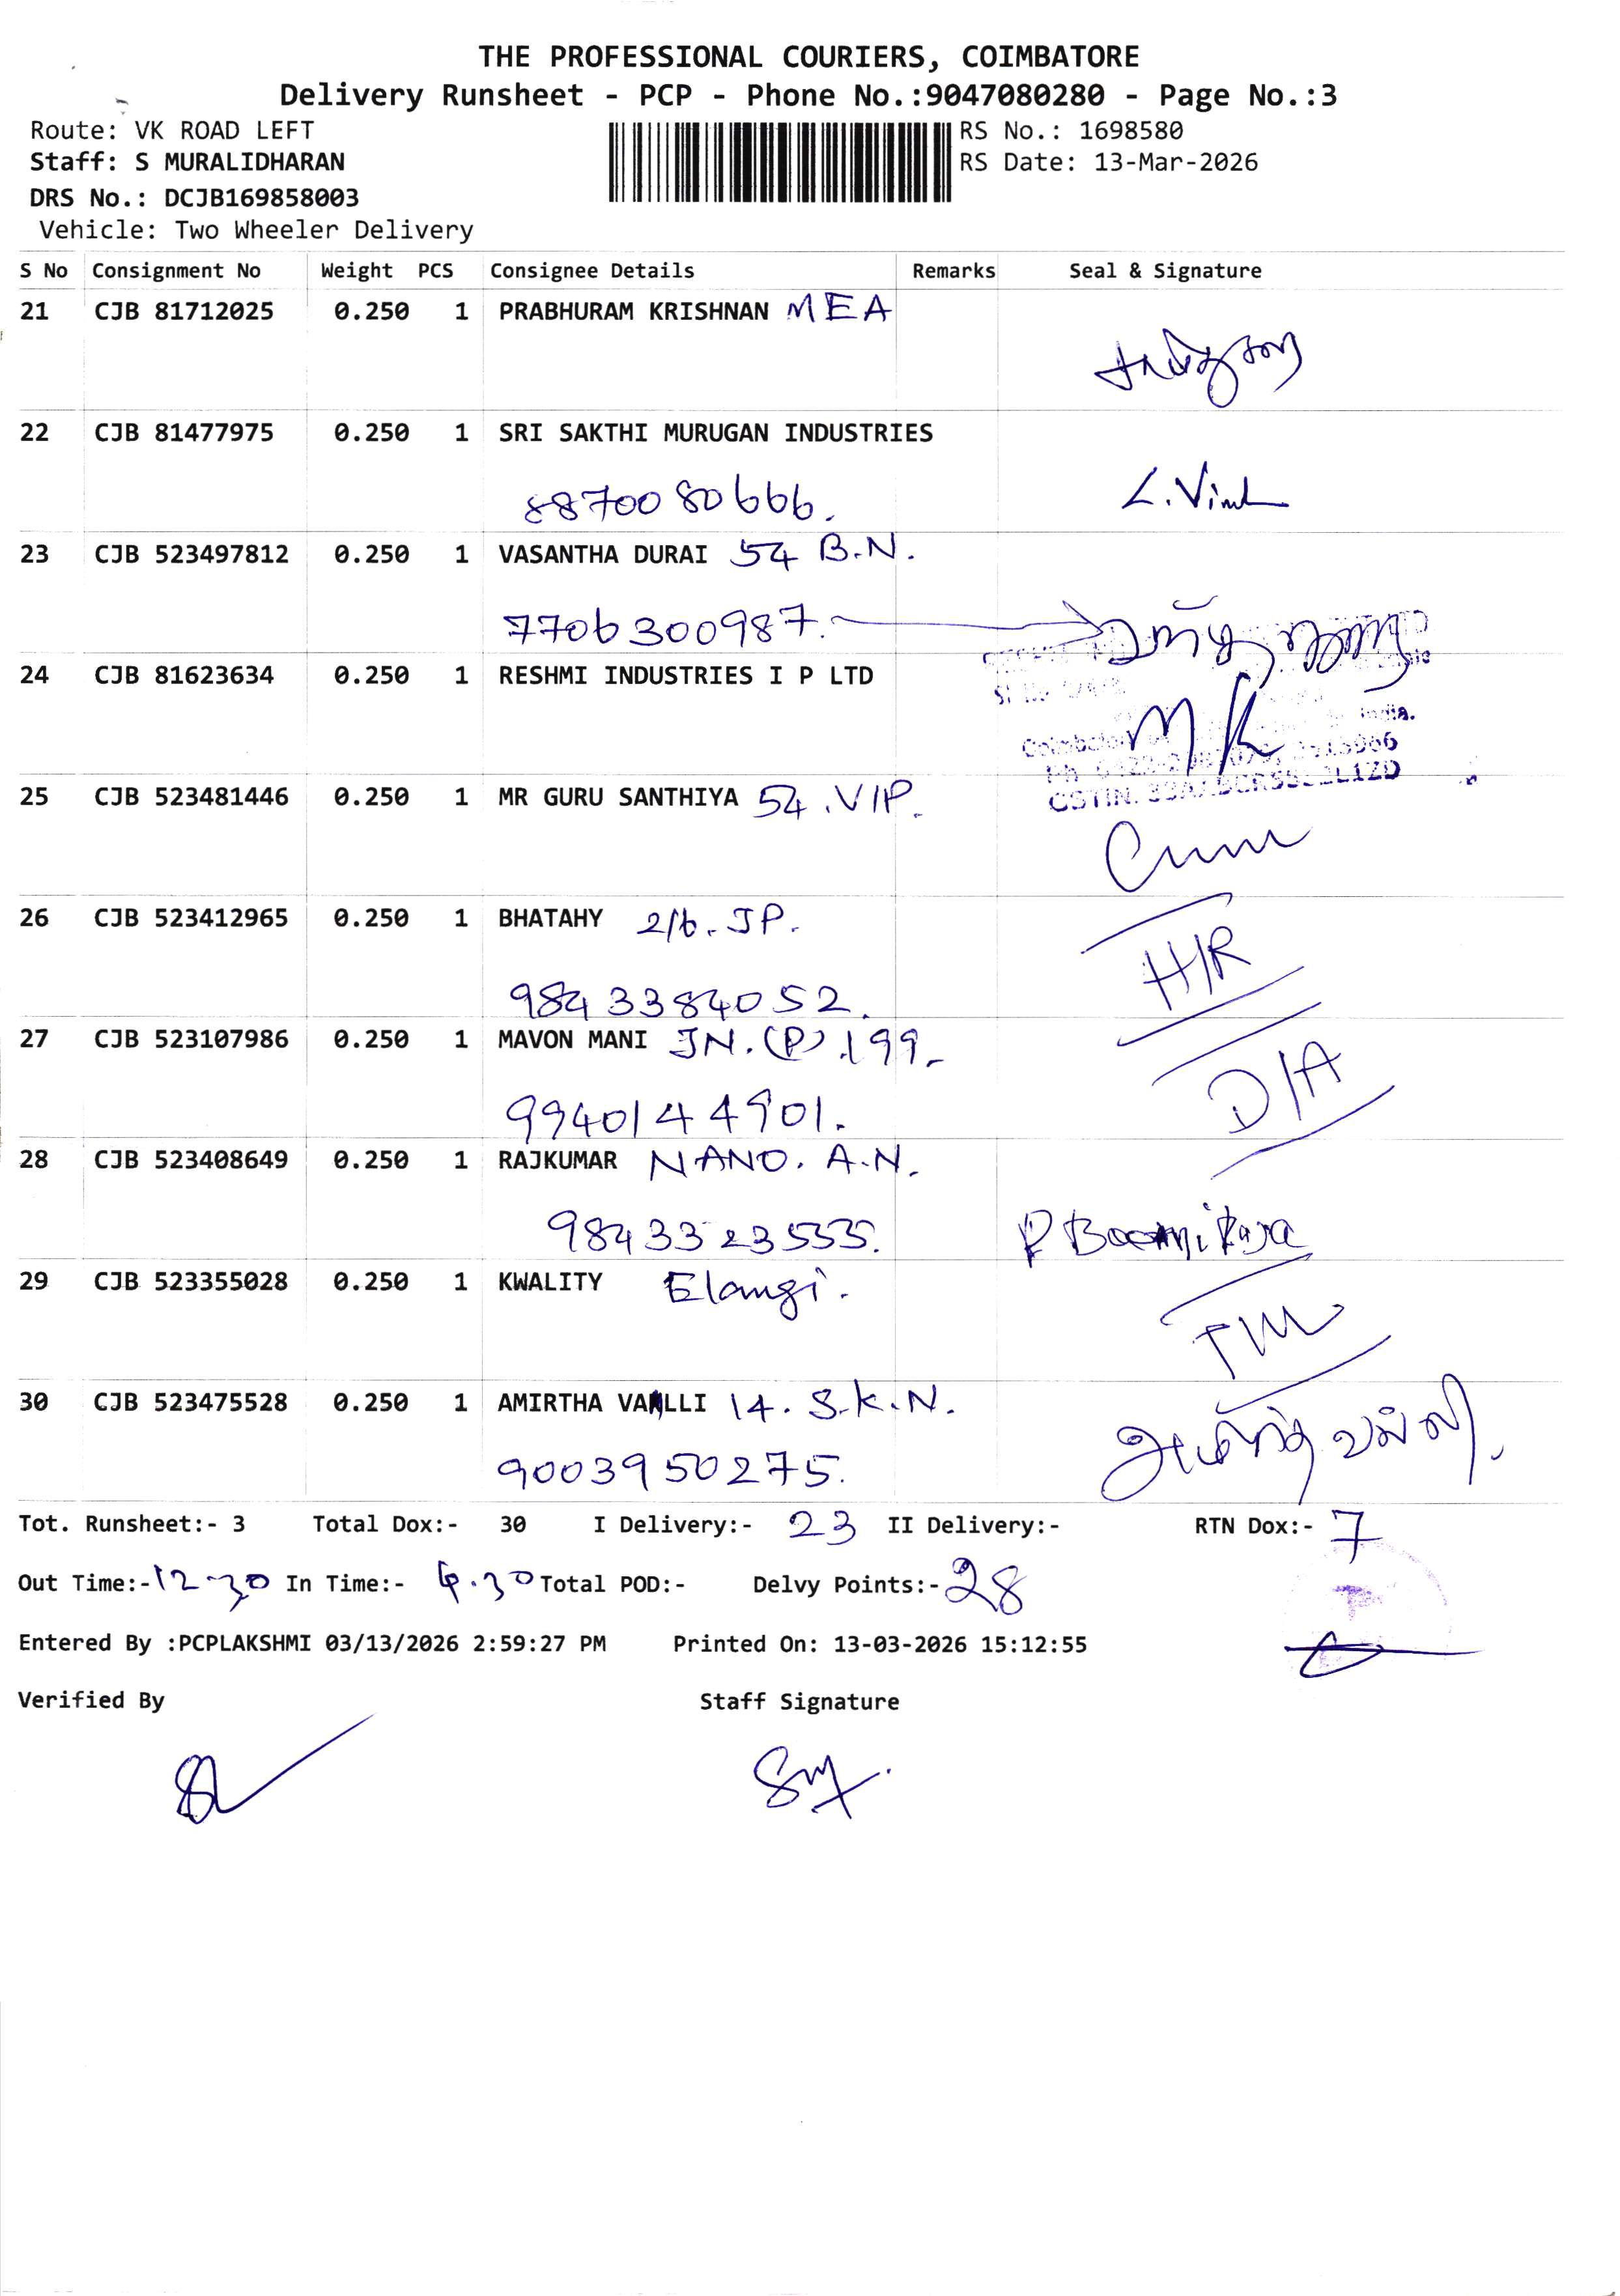 THE PROFESSIONAL COURIERS, COIMBATORE
Delivery Runsheet - PCP - Phone No.:9047080280 - Page No.:3
Route: VK ROAD LEFT
RS No.: 1698580
Staff: S MURALIDHARAN
RS Date: 13-Mar-2026
DRS No.: DCJB169858003
Vehicle: Two Wheeler Delivery
S No Consignment No Weight PCS Consignee Details Remarks Seal & Signature
21 CJB 81712025 0.250 1 PRABHURAM KRISHNAN MEA
22 CJB 81477975 0.250 1 SRI SAKTHI MURUGAN INDUSTRIES
8870080666.
23 CJB 523497812 0.250 1 VASANTHA DURAI 54 B.N.
7706300987.
24 CJB 81623634 0.250 1 RESHMI INDUSTRIES I P LTD
MK
India.
25 CJB 523481446 0.250 1 MR GURU SANTHIYA 54.VIP.
26 CJB 523412965 0.250 1 BHATAHY 2/6. JP.
H/R
9843384052.
27 CJB 523107986 0.250 1 MAVON MANI JN.(P).199.
D/A
9940144901.
28 CJB 523408649 0.250 1 RAJKUMAR NANO. A.N.
9843323555.
29 CJB 523355028 0.250 1 KWALITY Elangi.
30 CJB 523475528 0.250 1 AMIRTHA VALLI 14. S.K.N.
9003950275.
Tot. Runsheet:- 3 Total Dox:- 30 I Delivery:- 23 II Delivery:- RTN Dox:- 7
Out Time:- 12-30 In Time:- 4.30 Total POD:- Delvy Points:- 28
Entered By :PCPLAKSHMI 03/13/2026 2:59:27 PM Printed On: 13-03-2026 15:12:55
Verified By Staff Signature